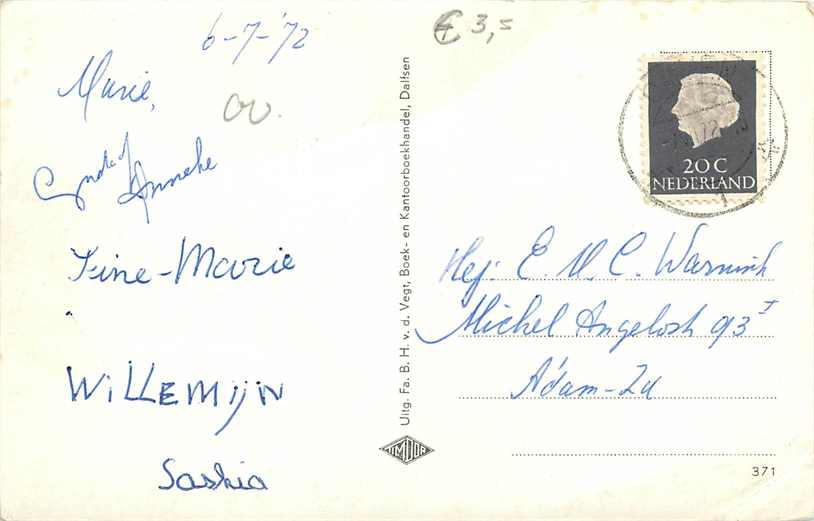 6-7-'72
€ 3,=
Marie,
OV.
Anneke
Tine-Marie
WILLEMIJN
Saskia
Uitg. Fa. B. H. v. d. Vegt, Boek- en Kantoorboekhandel, Dalfsen
20 C
NEDERLAND
Mej. E. M. C. Warnink
Michel Angelostr 93 I
A'dam-Zd
371